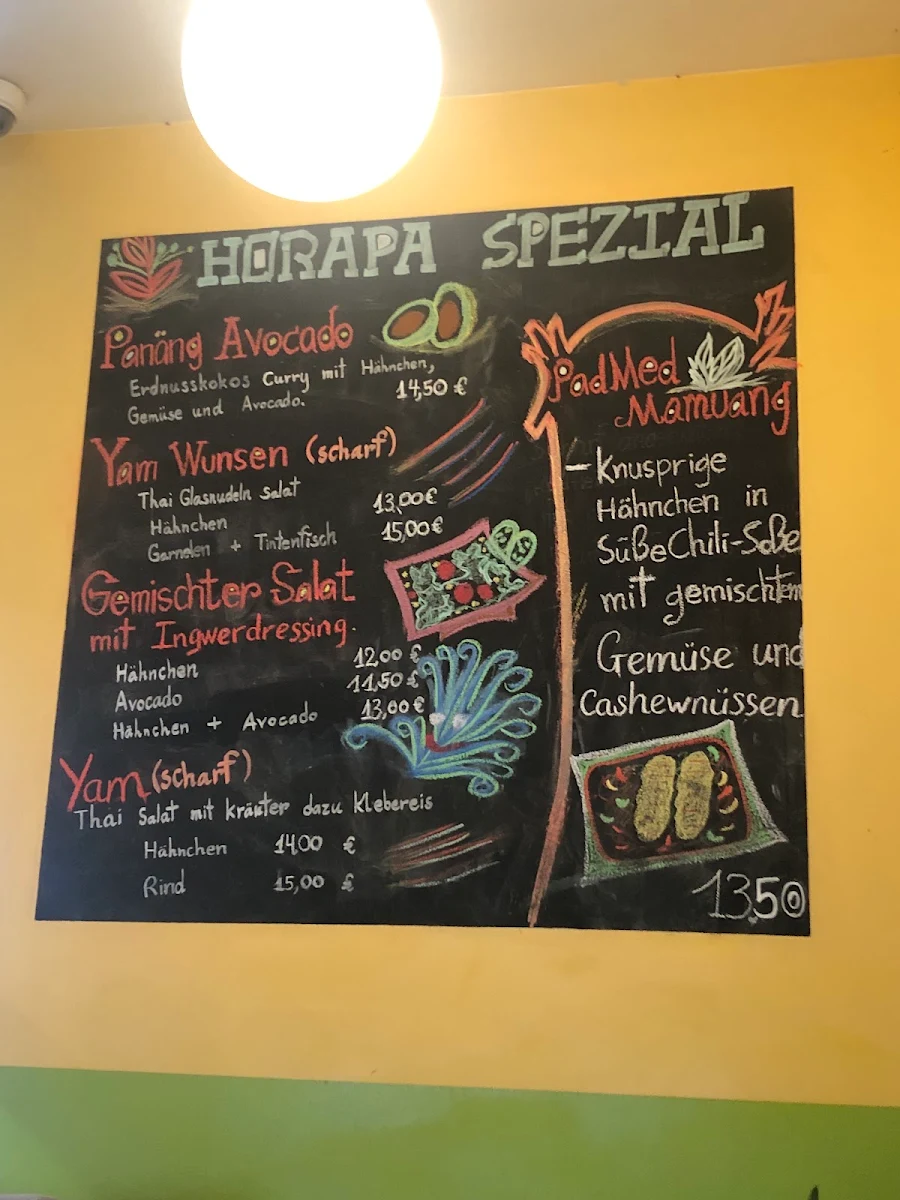 HORAPA SPEZIAL
Panäng Avocado
Erdnusskokos Curry mit Hähnchen,
Gemüse und Avocado. 14,50 €
Yam Wunsen (scharf)
Thai Glasnudeln salat
Hähnchen 13,00€
Garnelen + Tintenfisch 15,00€
Gemischter Salat
mit Ingwerdressing.
Hähnchen 12,00 €
Avocado 11,50 €
Hähnchen + Avocado 13,00€
Yam (scharf)
Thai Salat mit kräuter dazu Klebereis
Hähnchen 14,00 €
Rind 15,00 €
Pad Med
Mamuang
- Knusprige
Hähnchen in
SüßeChili-Soße
mit gemischtem
Gemüse und
Cashewnüssen
13,50